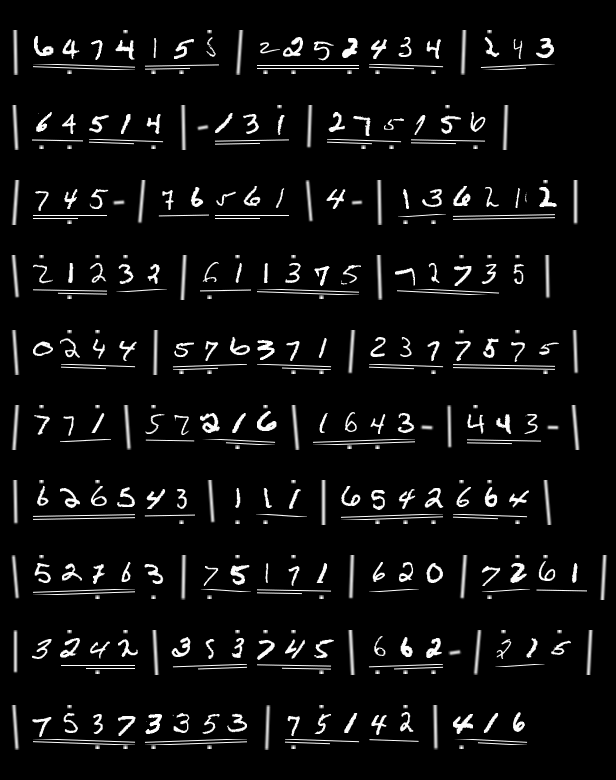 | 6 4 7 4 1 5 5 | 2 2 5 2 4 3 4 | 2 4 3
| 6 4 5 1 4 | - 1 3 1 | 2 7 5 1 5 6 |
| 7 4 5 - | 7 6 5 6 1 | 4 - | 1 3 6 2 1 2 |
| 2 1 2 3 2 | 6 1 1 3 7 5 | 7 2 7 3 5 |
| 0 2 4 4 | 5 7 6 3 7 1 | 2 3 7 7 5 7 5 |
| 7 7 1 | 5 7 2 1 6 | 1 6 4 3 - | 4 4 3 - |
| 6 2 6 5 4 3 | 1 1 1 | 6 5 4 2 6 6 4 |
| 5 2 7 6 3 | 7 5 1 7 1 | 6 2 0 | 7 2 6 1 |
| 3 2 4 2 | 3 5 3 7 4 5 | 6 6 2 - | 2 1 5 |
| 7 5 3 7 3 3 5 3 | 7 5 1 4 2 | 4 1 6